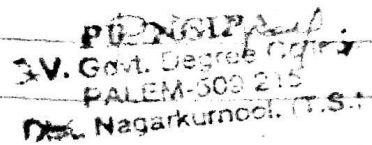 PRINCIPAL
S.V. Govt. Degree College
PALEM-509 215
Dist. Nagarkurnool. (T.S.)